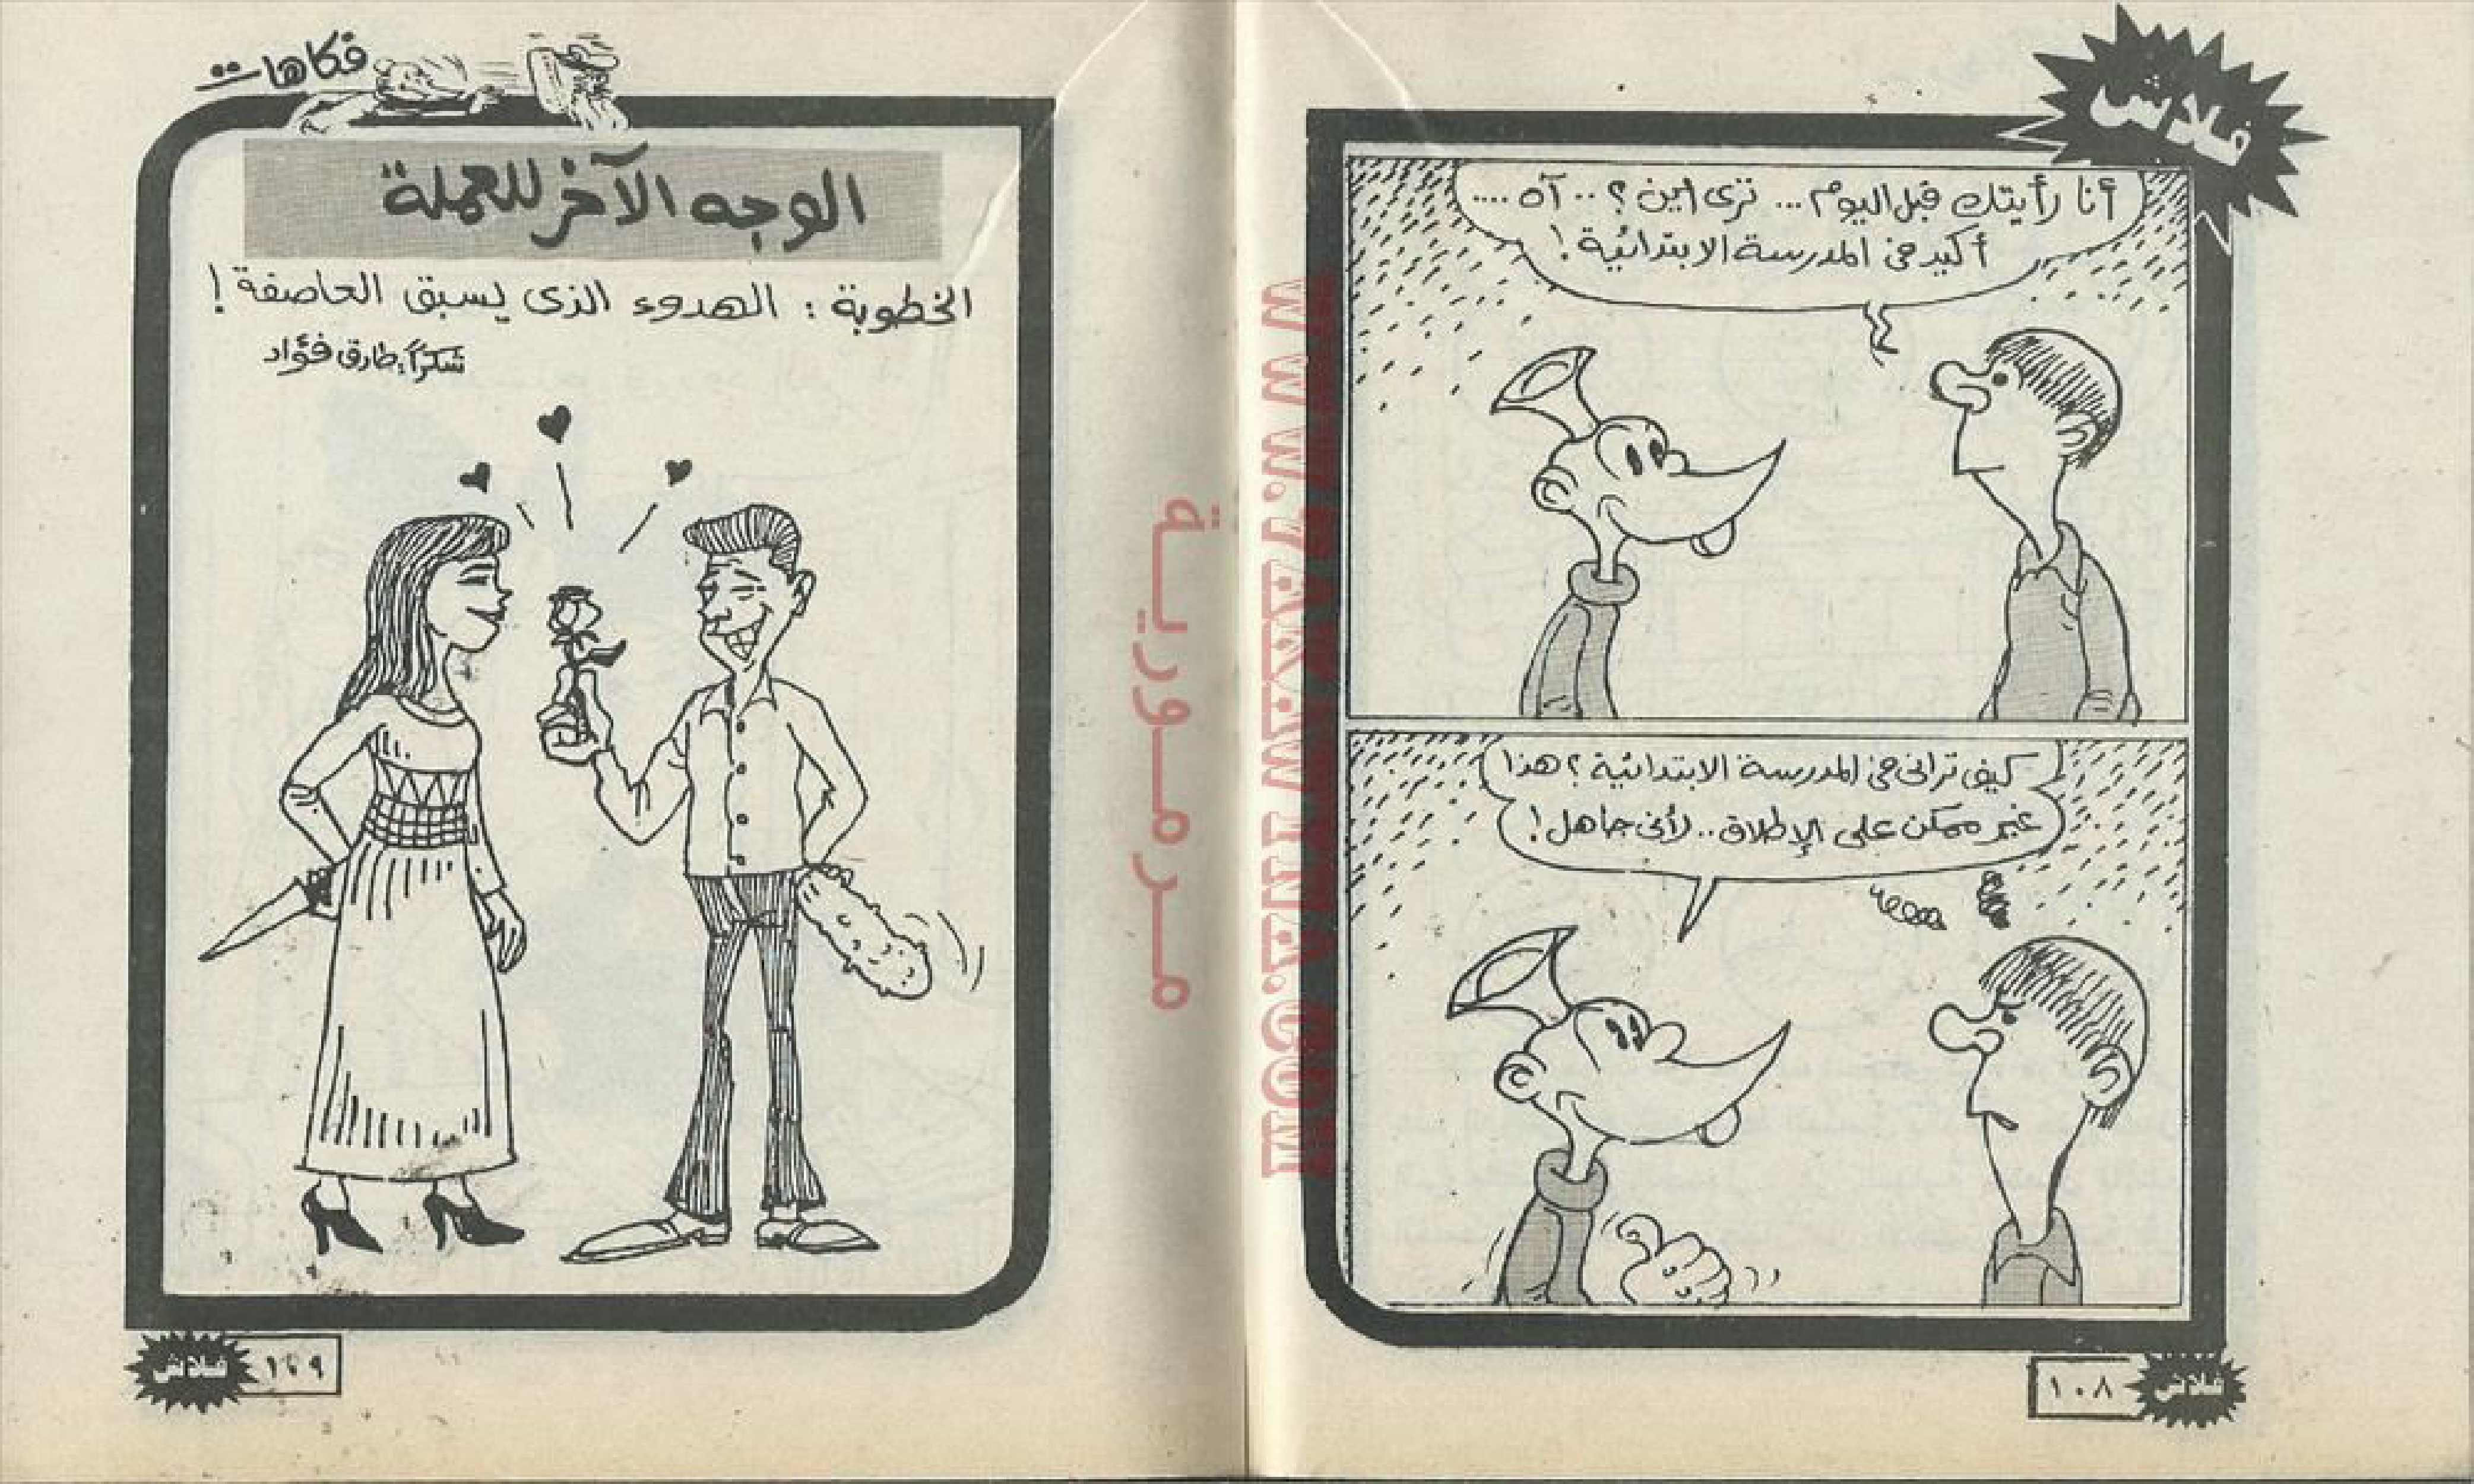 فلاش
أنا رأيتك قبل اليوم ... ترى اين ؟ .. آه ....
أكيد فى المدرسة الابتدائية !
كيف ترانى فى المدرسة الابتدائية ؟ هذا
غير ممكن على الإطلاق .. لأنى جاهل !
١٠٨
فلاش
فكاهات
الوجه الآخر للعملة
الخطوبة : الهدوء الذى يسبق العاصفة !
شكراً : طارق فؤاد
١٠٩
فلاش
مرمورية